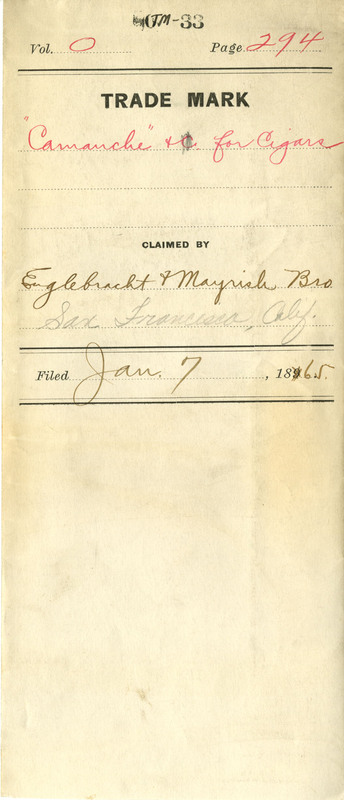 TM-33
Vol. O Page 294
TRADE MARK
"Camanche" &c. for Cigars
CLAIMED BY
Englebracht & Mayrish Bro
San Francisco, Calif.
Filed Jan. 7, 1865.